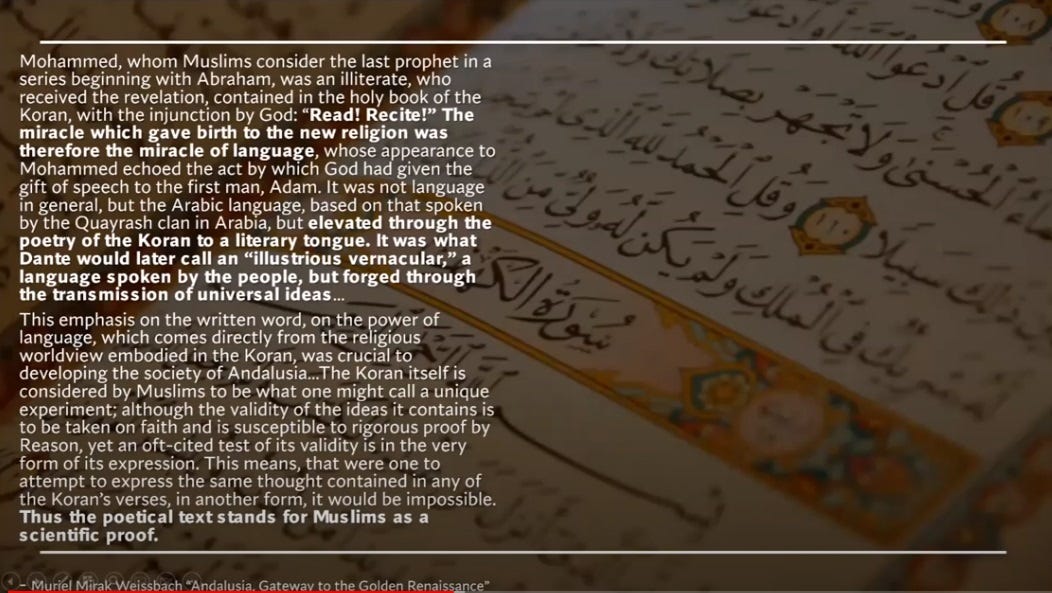 Mohammed, whom Muslims consider the last prophet in a
series beginning with Abraham, was an illiterate, who
received the revelation, contained in the holy book of the
Koran, with the injunction by God: “Read! Recite!” The
miracle which gave birth to the new religion was
therefore the miracle of language, whose appearance to
Mohammed echoed the act by which God had given the
gift of speech to the first man, Adam. It was not language
in general, but the Arabic language, based on that spoken
by the Quayrash clan in Arabia, but elevated through the
poetry of the Koran to a literary tongue. It was what
Dante would later call an “illustrious vernacular,” a
language spoken by the people, but forged through
the transmission of universal ideas...
This emphasis on the written word, on the power of
language, which comes directly from the religious
worldview embodied in the Koran, was crucial to
developing the society of Andalusia...The Koran itself is
considered by Muslims to be what one might call a unique
experiment; although the validity of the ideas it contains is
to be taken on faith and is susceptible to rigorous proof by
Reason, yet an oft-cited test of its validity is in the very
form of its expression. This means, that were one to
attempt to express the same thought contained in any of
the Koran’s verses, in another form, it would be impossible.
Thus the poetical text stands for Muslims as a
scientific proof.
– Muriel Mirak Weissbach “Andalusia, Gateway to the Golden Renaissance”
قُلِ ادْعُوا اللَّهَ أَوِ ادْعُوا
الْحُسْنَىٰ وَلَا تَجْهَرْ بِصَلَاتِكَ وَلَا
سَبِيلًا وَقُلِ الْحَمْدُ لِلَّهِ الَّذِي
وَلَمْ يَكُنْ لَهُ وَلِيٌّ مِنَ
شَرِيكٌ فِي الْمُلْكِ
سُورَةُ